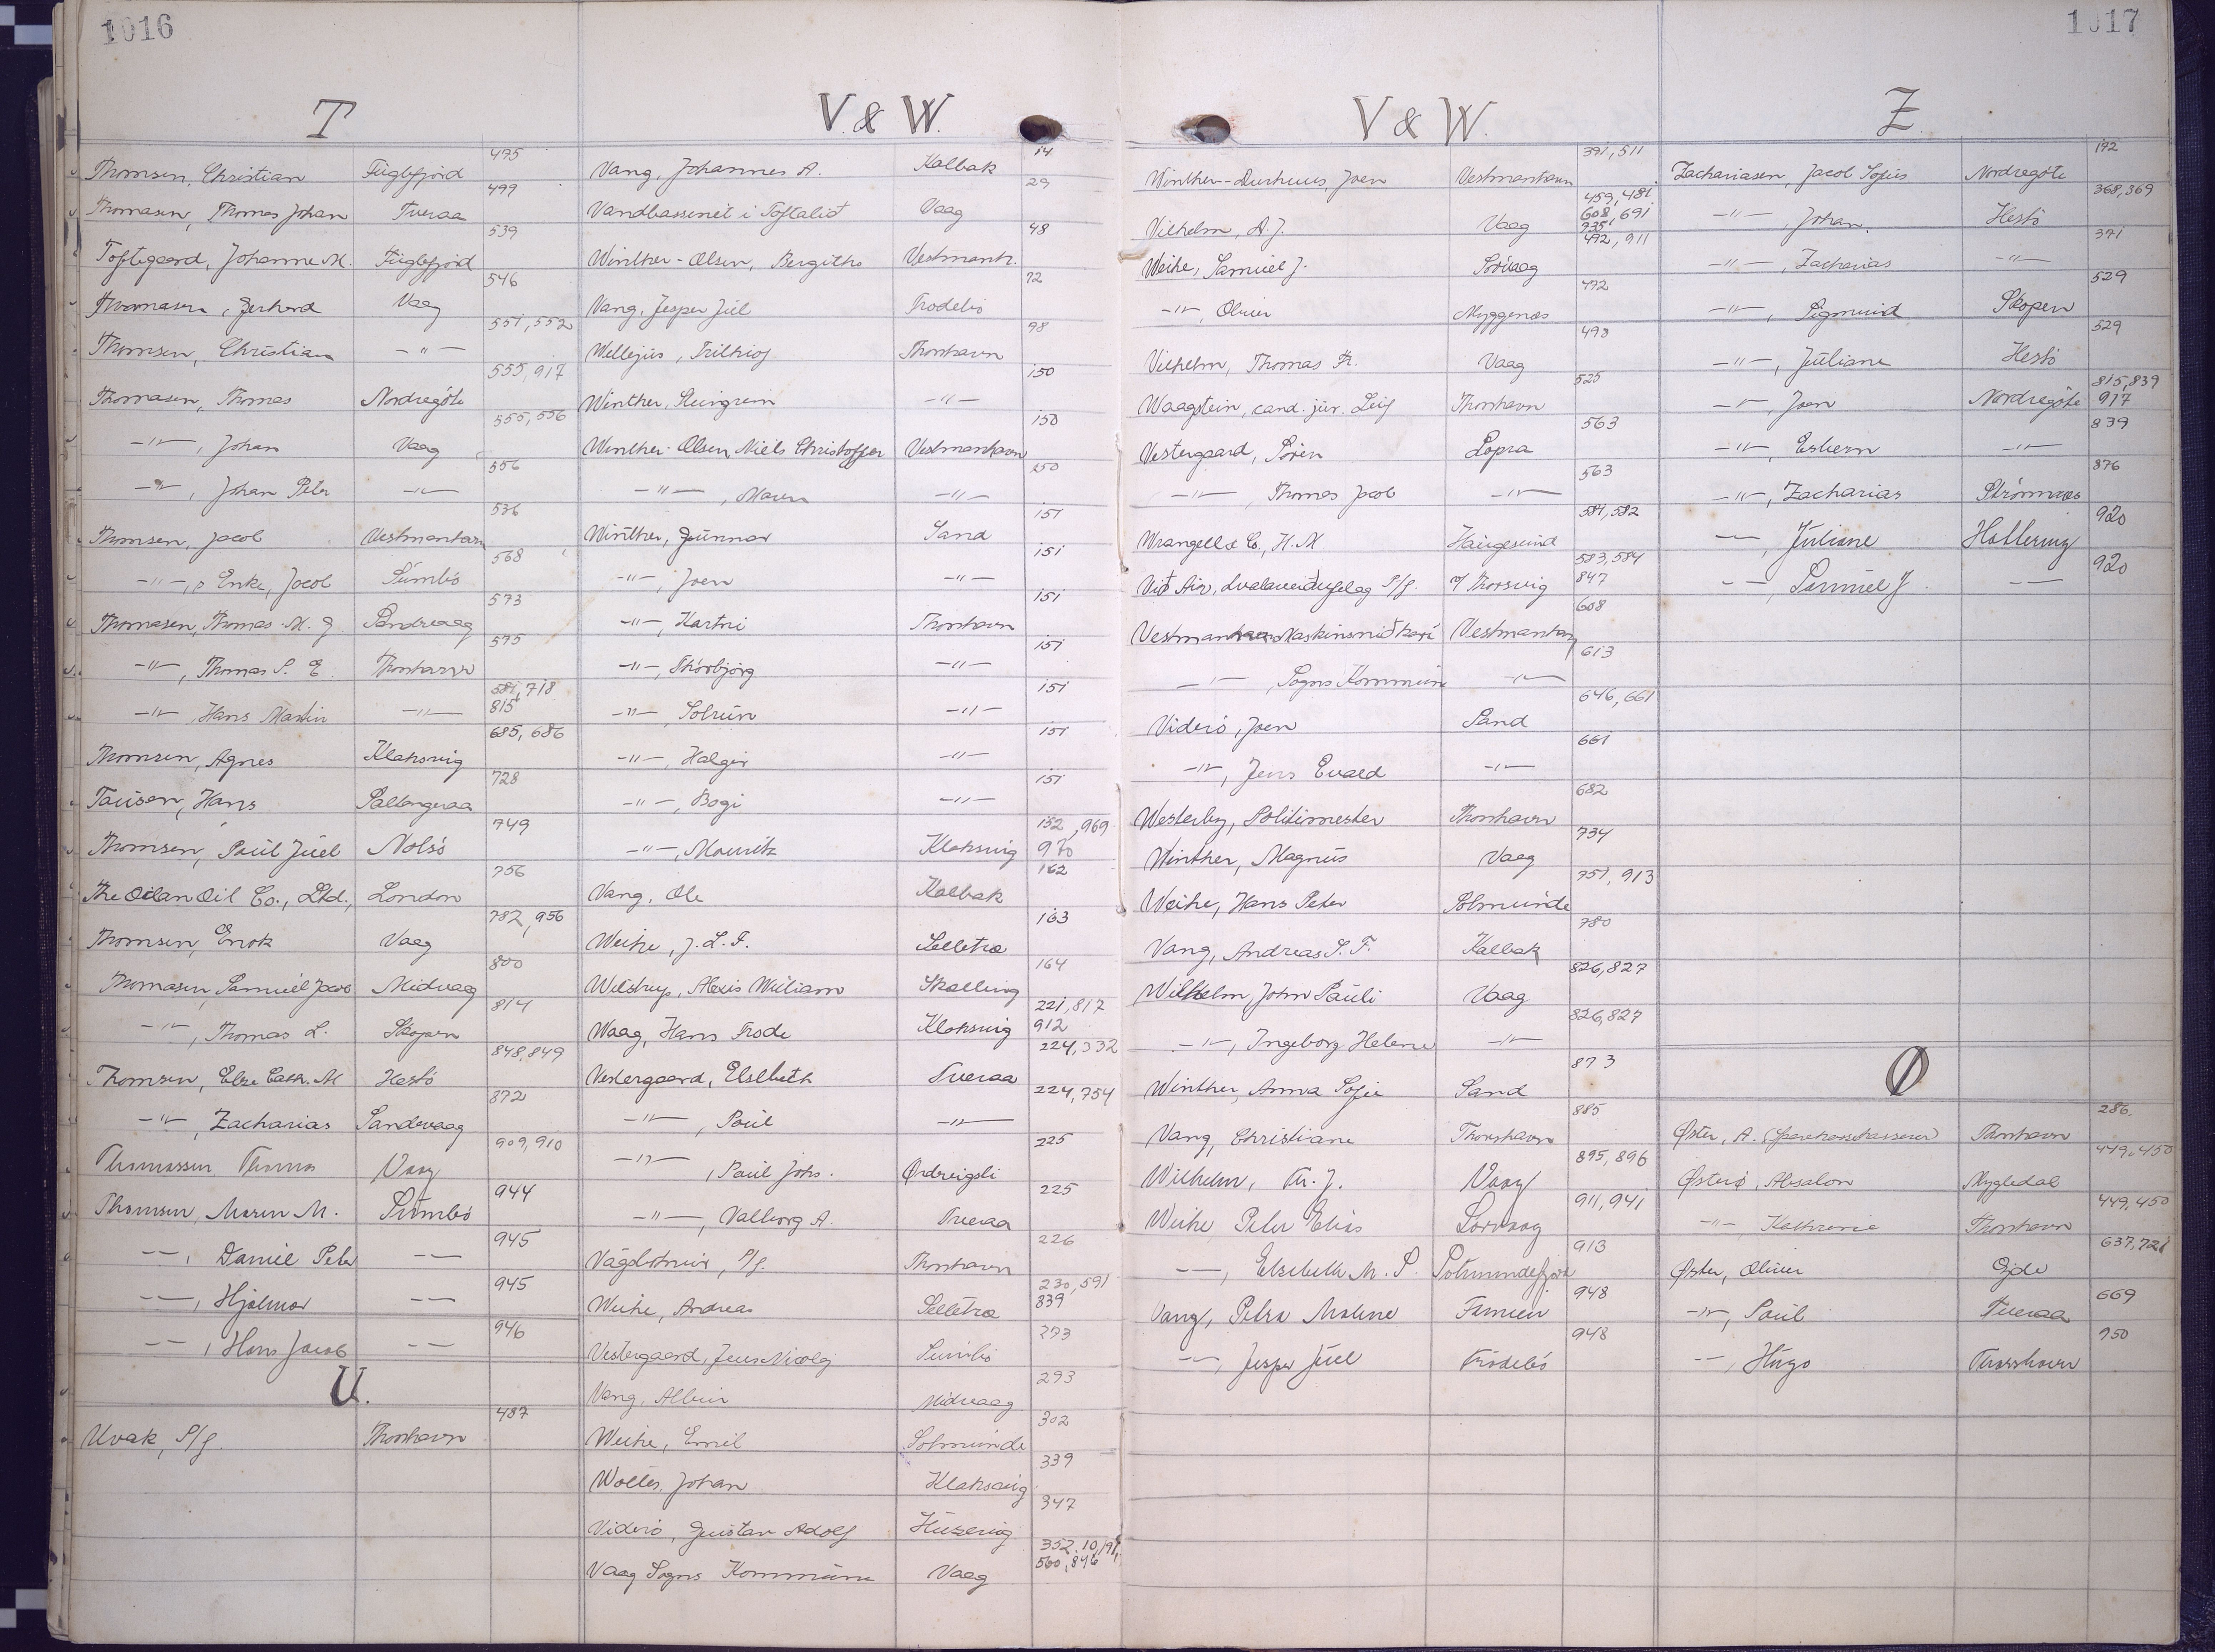 1016
T
Thomsen, Christian Fuglefjord 475
Thomasen, Thomas Johan Tveraa 499
Toftegaard, Johanne M. Fuglefjord 539
Thomasen, Gerhard Vaag 546
Thomsen, Christian -"- 551, 552
Thomasen, Thomas Nordregöte 555, 917
-"-, Johan Vaag 555, 556
-"-, Johan Peter -"- 556
Thomsen, Jacob Vestmanhavn 536
-"-, s Enke, Jacob Sumbö 568
Thomasen, Thomas M. J. Sandvaag 573
-"-, Thomas S. E. Thorshavn 575
-"-, Hans Martin -"- 581, 718
815
Thomsen, Agnes Klaksvig 685, 686
Tausen, Hans Saltangeraa 728
Thomsen, Paul Juel Nolsö 749
The Oilan Oil Co., Ltd., London 756
Thomsen, Enok Vaag 782, 956
Thomasen, Samuel Jacob Midvaag 800
-"-, Thomas L. Skopen 814
Thomsen, Else Cath. M Hestö 848,849
-"-, Zacharias Sandevaag 872
Thomassen Thomas Vaag 909, 910
Thomsen, Maren M. Sumbö 944
-"-, Daniel Peter -"- 945
-"-, Hjalmar -"- 945
-"-, Hans Jacob -"- 946
U.
Uvak, P/f. Thorshavn 487
V. & W.
Vang, Johannes A. Kalbak 14
Vandbassenet i Toftalið Vaag 29
Winther-Olsen, Bergitha Vestmanh. 48
Vang, Jesper Juel Frodebö 72
Wellejus, Frithiof Thorshavn 98
Winther, Steingrim -"- 150
Winther-Olsen, Niels Christoffer Vestmanhavn 150
-"-, Maren -"- 250
Winther, Gunnar Sand 151
-"-, Joen -"- 151
-"-, Kartni Thorshavn 151
-"-, Thorbjörg -"- 151
-"-, Solrun -"- 151
-"-, Halgir -"- 151
-"-, Bogi -"- 151
-"-, Mouritz Klaksvig 152, 969
970
Vang, Ole Kalbak 162
Weihe, J. L. F. Selletræ 163
Wilstrup, Alexis William Skælling 164
Waag, Hans Frode Klaksvig 221, 817
912
Vestergaard, Elsebeth Tveraa 224, 332
-"-, Poul -"- 224, 754
-"-, Paul Johs. Ördevigsli 225
-"-, Valborg A. Tveraa 225
Vágsbotnur, P/f. Thorshavn 226
Weihe, Andreas Selletræ 230, 591
839
Vestergaard, Jens Nicolaj Sumbö 273
Vang, Albin Midvaag 293
Weihe, Emil Solmunde 302
Wolles, Johan Klaksvig 339
Viderö, Gustav Adolf Husevig 347
Vaag Sogns Kommune Vaag 352, 10, 191,
560, 846
1017
V & W.
Winther-Durhuus, Joen Vestmanhavn 391, 511
Vilhelm, A. J. Vaag 459, 481
608, 691
935
Weihe, Samuel J. Sörvaag 492, 911
-"-, Oliver Myggenæs 492
Vilhelm, Thomas Fr. Vaag 493
Waagstein, cand. jur. Leif Thorshavn 525
Vestergaard, Sören Lopra 563
-"-, Thomas Jacob -"- 563
Wrangell & Co, H. M Haugesund 581, 582
Við Air, Hvalaveiðufelag P/f. v/ Thorsvig 583, 584
847
Vestmanhavns Maskinsmiðkari Vestmanhavn 608
-"-, Sogns Kommune -"- 613
Viderö, Joen Sand 646, 661
-"-, Jens Evald -"- 661
Westerby, Politimester Thorshavn 682
Winther, Magnus Vaag 734
Weihe, Hans Peter Solmunde 751, 913
Vang, Andreas S. F. Kalbak 780
Wilhelm, John Pauli Vaag 826,827
-"-, Ingeborg Helene -"- 826,827
Winther, Anna Sofie Sand 873
Vang, Christiane Thorshavn 885
Wilhelm, Fr. J. Vaag 895, 896
Weihe Peter Elias Sörvaag 911, 941
-"-, Elsebeth M. S. Solmundefjord 913
Vang, Petra Malene Famien 948
-"-, Jesper Juel Frodebö 948
Z
Zachariasen, Jacob Sofus Nordregöte 192
-"-, Johan. Hestö 368,369
-"-, Zacharias -"- 371
-"-, Sigmund Skopen 529
-"-, Juliane Hestö 529
-"-, Joen Nordregöte 815,839
917
-"-, Esbern -"- 839
-"-, Zacharias Strömnæs 876
-"-, Juliane Hattervig 920
-"-, Samuel J. -"- 920
Ø
Øster, A. (Sparekassekasserer) Thorshavn 286.
Østerø, Absalon Mygledal 449,450
-"- Kathrina Thorshavn 449,450
Øster, Oliver Gjov 637,721
-"-, Poul Tveraa 669
-"-, Hugo Thorshavn 950